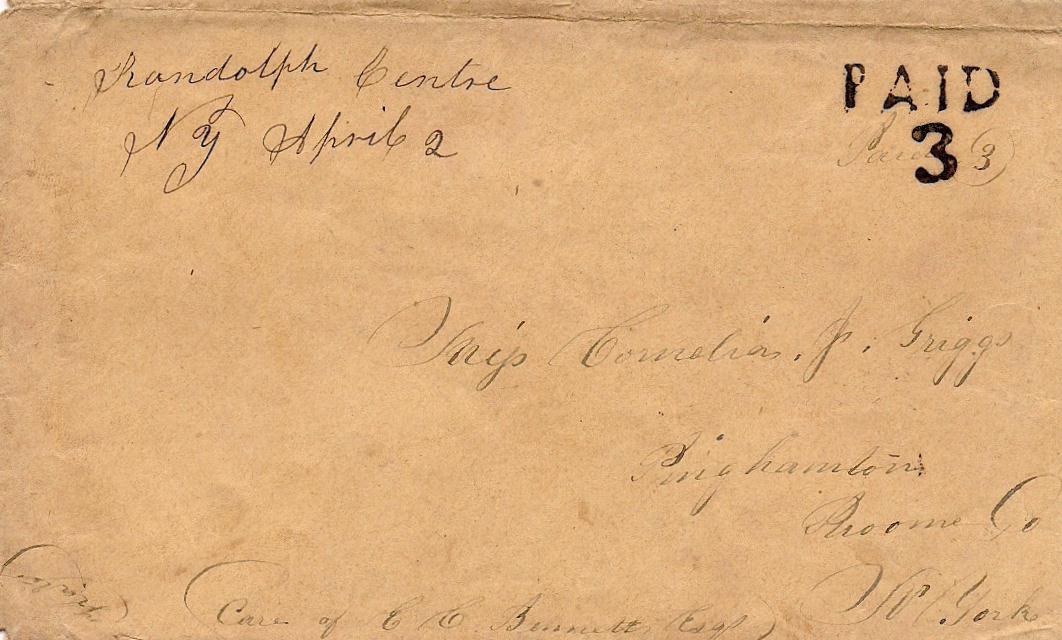 Randolph Centre
N Y April 2
PAID
3
Paid 3
Miss Cornelia. J. Griggs
Binghamton
Broome Co
N. York
Care of E C Bennett Esqr